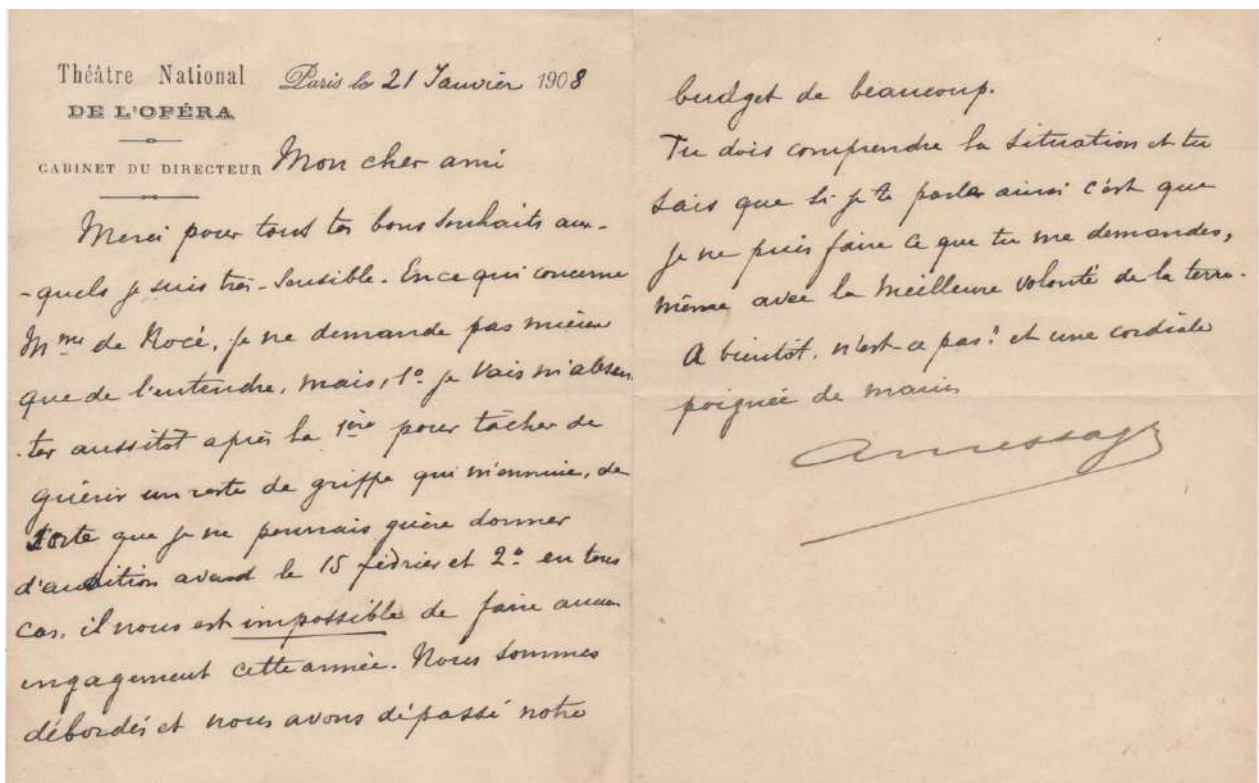 Théâtre National
DE L'OPÉRA
CABINET DU DIRECTEUR
Paris le 21 Janvier 1908
Mon cher ami
Merci pour tous tes bons souhaits aux-
-quels je suis très-sensible. En ce qui concerne
Mme de Nocé, je ne demande pas mieux
que de l'entendre, mais, 1º je vais m'absen
-ter aussitôt après la 1ère pour tâcher de
guérir un reste de grippe qui m'ennuie, de
sorte que je ne pourrais guère donner
d'audition avant le 15 février et 2º en tous
cas, il nous est impossible de faire aucun
engagement cette année. Nous sommes
débordés et nous avons dépassé notre
budget de beaucoup.
Tu dois comprendre la situation et tu
sais que si je te parle ainsi c'est que
je ne puis faire ce que tu me demandes,
même avec la meilleure volonté de la terre.
A bientôt, n'est ce pas? et une cordiale
poignée de mains
A Messager